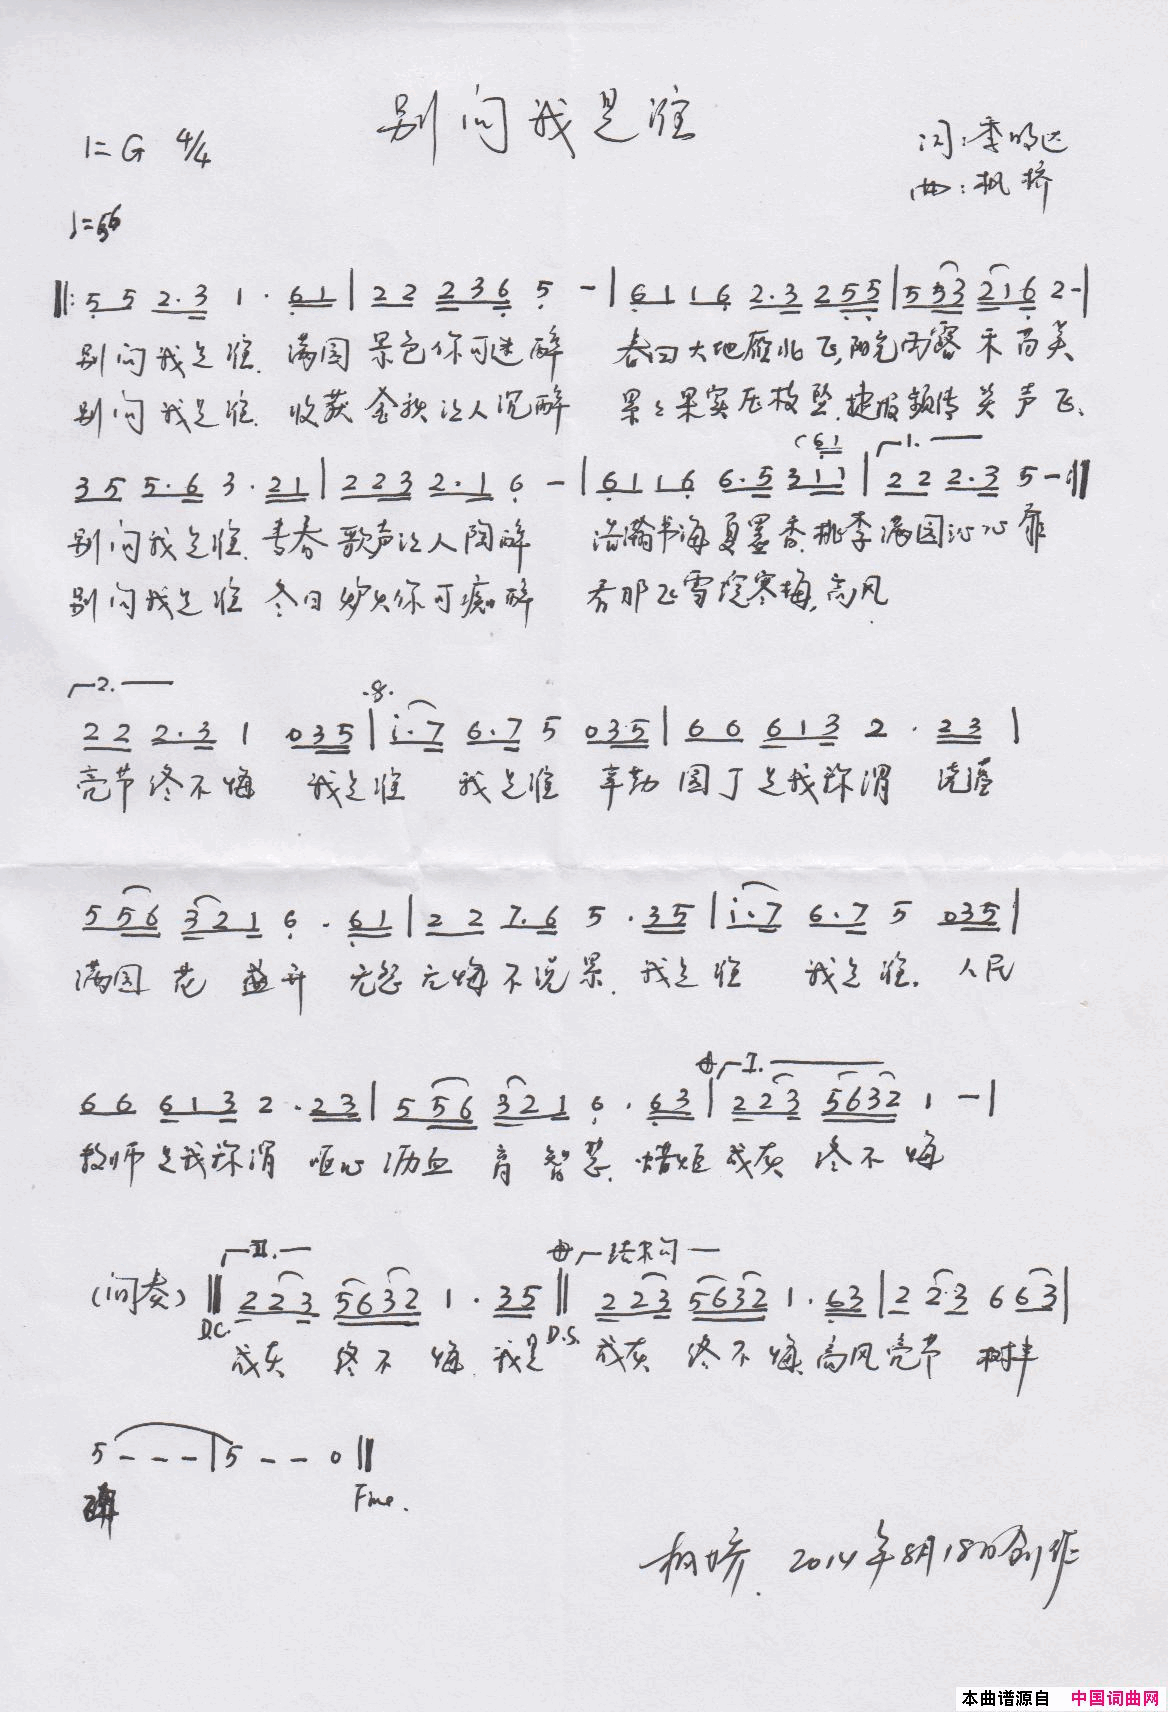 别问我是谁
1=G 4/4
词:季明达
曲:枫桥
♩=56
‖: 5 5 2·3 1· 61 | 22 236 5 - | 61 16 2·3 255 | 553 216 2 - |
别问我是谁.满园景色你可迷醉 春回大地雁北飞,阳光雨露禾苗美
别问我是谁.收获金秋让人沉醉 累累果实压枝坠.捷报频传笑声飞、
(61 1.
35 5·6 3·21 | 223 2·1 6 - | 61 16 6·5 311 | 22 2·3 5 - :‖
别问我是谁.青春歌声让人陶醉 浩瀚书海夏墨香.桃李满园沁心扉
别问我是谁 冬日炉火你可痴醉 看那飞雪绽寒梅,高风
2. .8.
22 2·3 1 035 | i·7 6·7 5 035 | 66 613 2·23 |
亮节终不悔 我是谁 我是谁 辛勤园丁是我称谓 浇灌
556 321 6·61 | 22 7·6 5·35 | i·7 6·7 5 035 |
满园花盛开 无怨无悔不说累.我是谁 我是谁.人民
II.
66 613 2·23 | 556 321 6·63 | 223 5632 1 - |
教师是我称谓 呕心沥血育智慧.蜡炬成灰终不悔
III. 结束句
(间奏) ‖ 223 5632 1·35 ‖ 223 5632 1·63 | 223 663 |
D.C. D.S.
成灰终不悔 我是 成灰终不悔,高风亮节树丰
5 - - - | 5 - - 0 ‖
碑 Fine.
枫桥. 2014年8月18日创作
本曲谱源自 中国词曲网